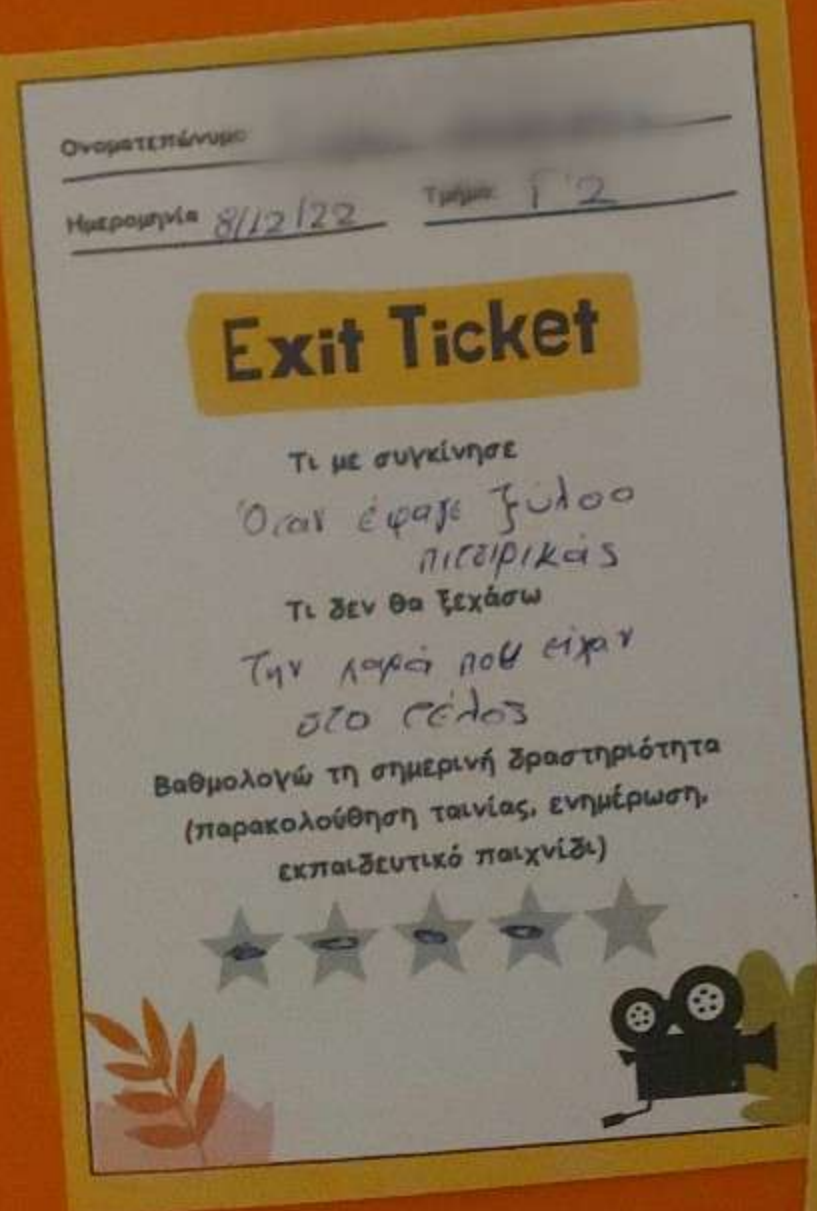 Ονοματεπώνυμο
Ημερομηνία 8/12/22 Τμήμα: Γ'2
Exit Ticket
Τι με συγκίνησε
Όταν έφαγε ξύλο ο
πιτσιρικάς
Τι δεν θα ξεχάσω
Την χαρά που είχαν
στο τέλος
Βαθμολογώ τη σημερινή δραστηριότητα
(παρακολούθηση ταινίας, ενημέρωση,
εκπαιδευτικό παιχνίδι)